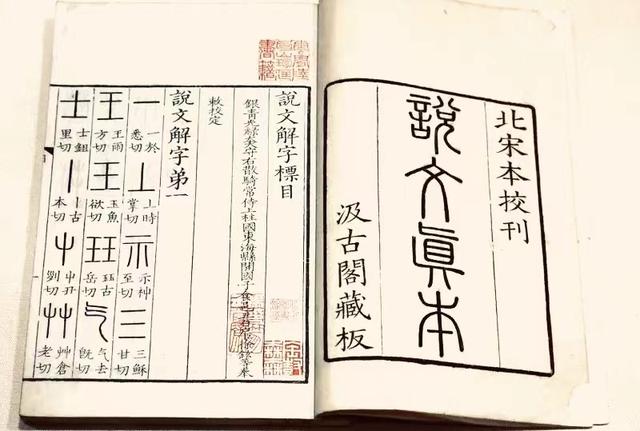 北宋本校刊
說文眞本
汲古閣藏板
說文解字標目
銀青光祿大夫守右散騎常侍上柱國東海縣開國子食邑五百戶臣徐鉉等奉
敕校定
說文解字第一
一 一於悉切 丄 上時掌切 示 示神至切 三 三穌甘切
王 王雨方切 王 玉魚欲切 玨 玨古岳切 气 气去旣切
士 士鉏里切 丨 丨古本切 屮 屮丑列切 艸 艸倉老切